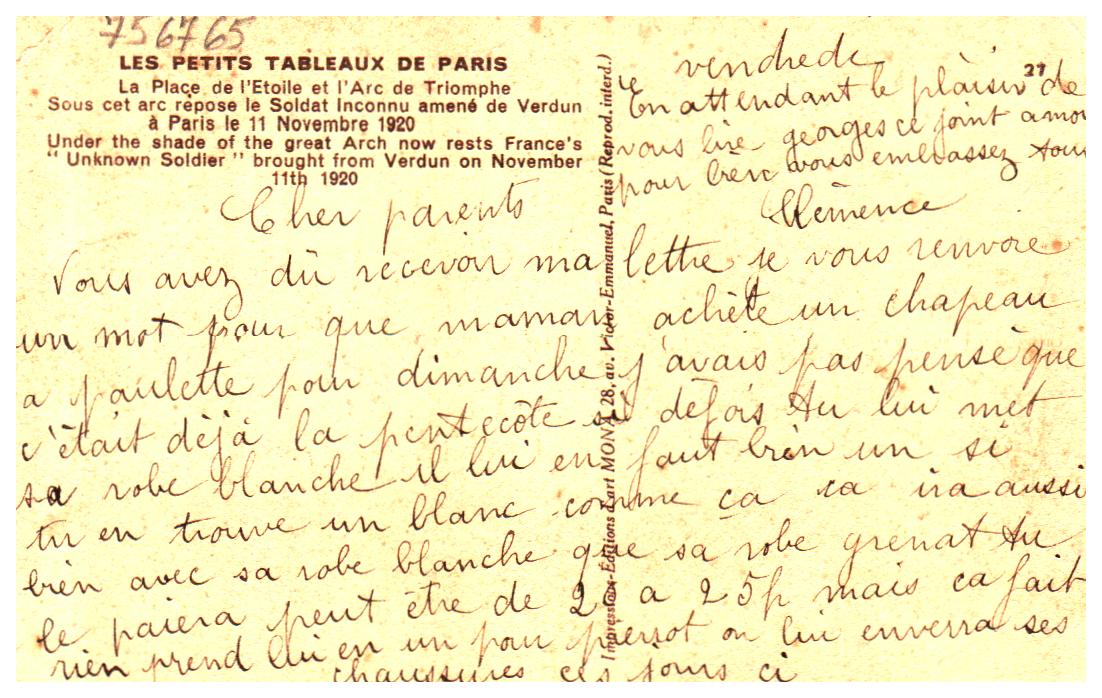 756765
LES PETITS TABLEAUX DE PARIS
La Place de l'Etoile et l'Arc de Triomphe
Sous cet arc repose le Soldat Inconnu amené de Verdun
à Paris le 11 Novembre 1920
Under the shade of the great Arch now rests France's
" Unknown Soldier " brought from Verdun on November
11th 1920
Impressions-Éditions d'art MONA, 28, av. Victor-Emmanuel, Paris (Reprod. interd.)
27
vendrede
En attendant le plaisir de
vous lire georges ce joint a moi
pour vous embrassez tous
Clémence
Cher parents
Vous avez dû recevoir ma lettre je vous renvoie
un mot pour que maman achète un chapeau
a paulette pour dimanche j'avais pas pensé que
c'était déjà la pentecôte si dèfois tu lui met
sa robe blanche il lui en faut bien un si
tu en trouve un blanc comme ça ca ira aussi
bien avec sa robe blanche que sa robe grenat tu
le paiera peut être de 20 a 25f mais ca fait
rien prend lui en un pour pierrot on lui enverra ses
chaussures ces jours ci